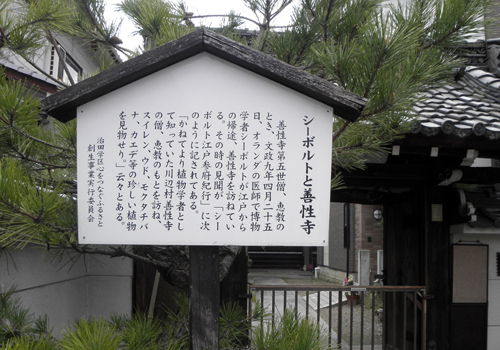 シーボルトと善性寺
善性寺第五世僧、恵教の
とき、文政九年四月二十五
日、オランダの医師で博物
学者シーボルトが江戸から
の帰途、善性寺を訪ねてい
る。その時の見聞が「シー
ボルト江戸参府紀行」に次
のように記されてある。
「かねてより植物学者とし
て知っていた川辺村善性寺
の僧、恵教のもとを訪ね、
スイレン、ウド、モクタチバ
ナ、カエデ等の珍しい植物
を見物せり」云々とある。
治田学区心をつなぐふるさと
創生事業実行委員会